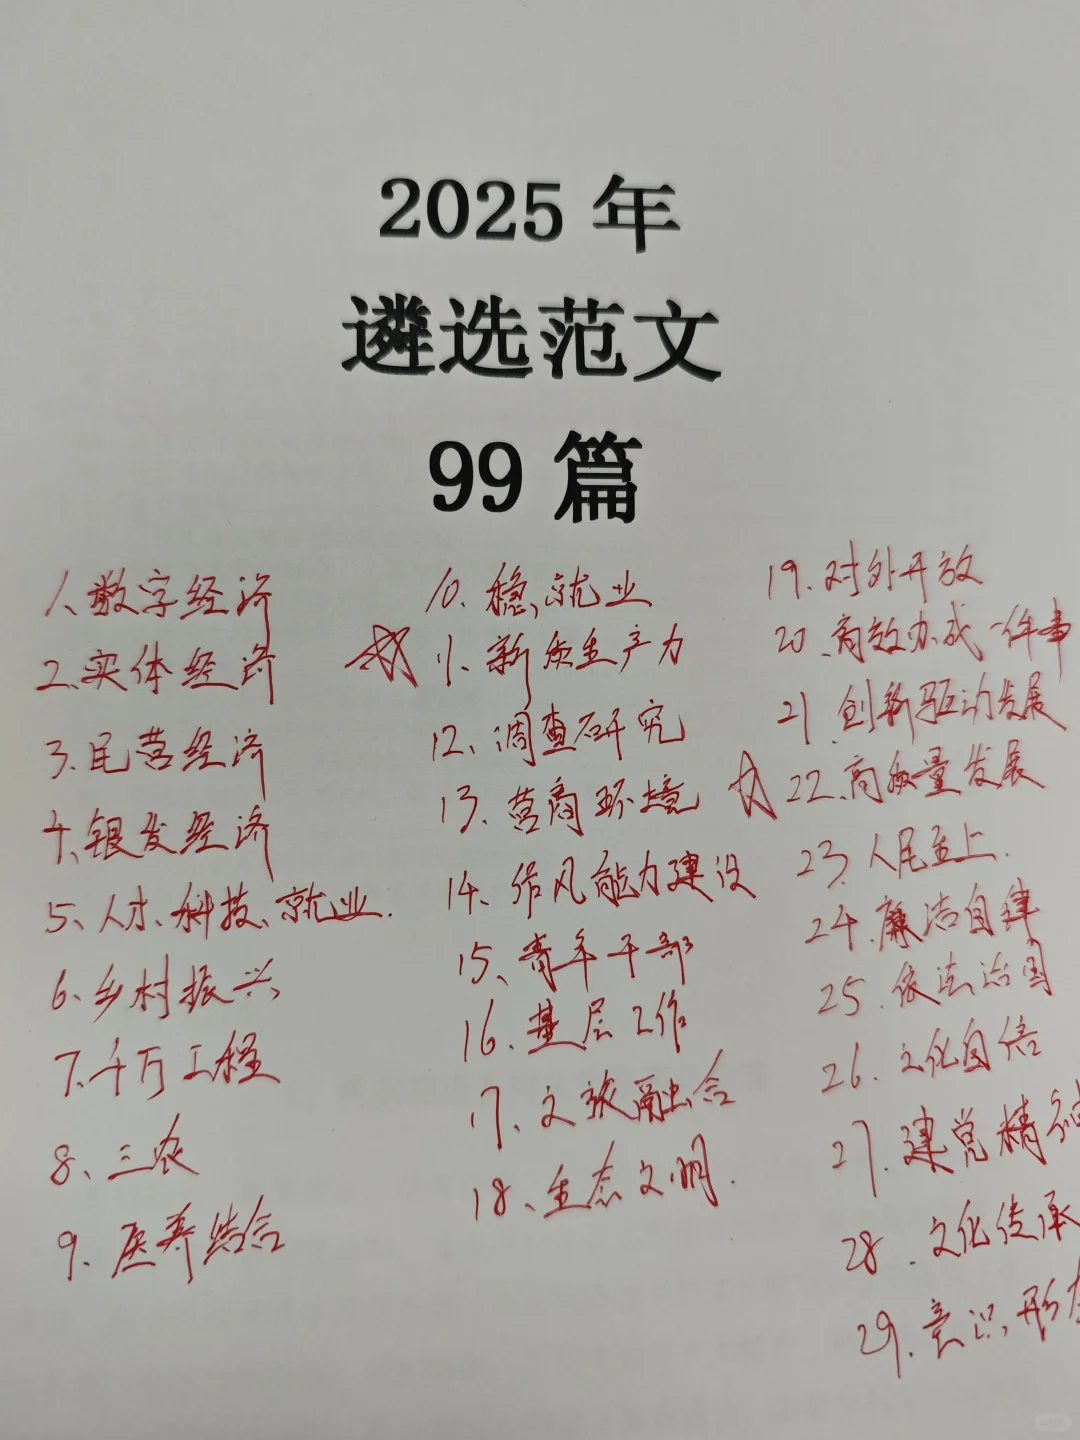 2025 年
遴选范文
99 篇
1、数字经济
2、实体经济
3、民营经济
4、银发经济
5、人才、科技、就业.
6、乡村振兴
7、千万工程
8、三农
9、医养结合
10、稳就业
11、新质生产力
12、调查研究
13、营商环境
14、作风能力建设
15、青年干部
16、基层工作
17、文旅融合
18、生态文明.
19、对外开放
20、高效办成一件事
21、创新驱动发展
22、高质量发展
23、人民至上.
24、廉洁自律
25、依法治国
26、文化自信
27、建党精神
28、文化传承
29、意识形态